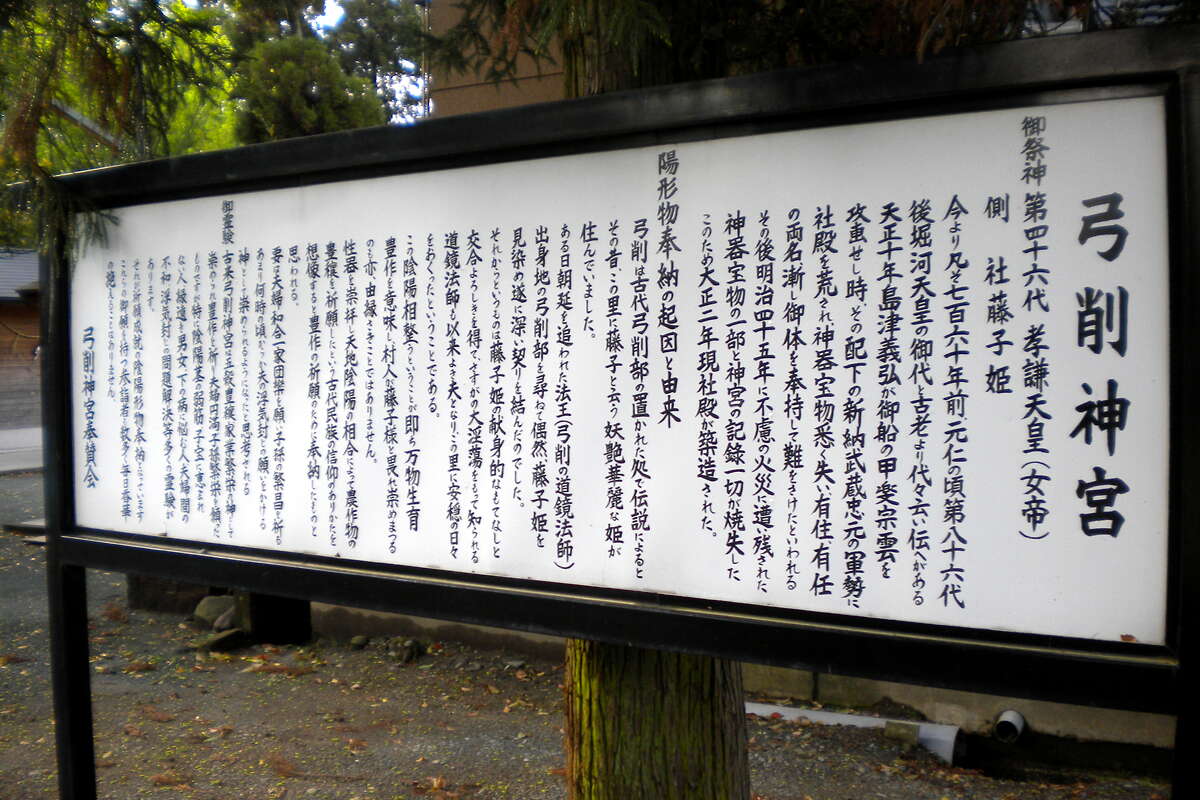 弓削神宮
御祭神 第四十六代 孝謙天皇(女帝)
側 社 藤子姫
今より凡そ七百六十年前元仁の頃第八十六代
後堀河天皇の御代と古老より代々云い伝がある
天正十年島津義弘が御船の甲斐宗雲を
攻重せし時、その配下の新納武蔵忠元の軍勢に
社殿を荒され神器宝物悉く失い有住、有任
の両名漸し御体を奉持して難をさけたといわれる
その後明治四十五年に不慮の火災に遭い残された
神器宝物の一部と神宮の記録一切が焼失した
このため大正二年現社殿が築造された。
陽形物奉納の起因と由来
弓削は古代弓削部の置かれた処で伝説によると
その昔この里に藤子と云う妖艶華麗な姫が
住んでいました。
ある日朝延を追われた法王(弓削の道鏡法師)
出身地の弓削部を尋ねて偶然、藤子姫を
見染め遂に深い契りを結んだのでした。
それからというものは藤子姫の献身的なもてなしと
交合よろしきを得て、さすがの大淫蕩をもって知られる
道鏡法師も以来よき夫となりこの里に安穏の日々
をおくったということである。
この陰陽相繋うということが即ち万物生育
豊作を意味し村人が藤子様と畏れ崇めまつる
のも亦、由縁なきことではありません。
性器を崇拝し天地陰陽の相合によって農作物の
豊穣を祈願したという古代民族の信仰のありかたを
想像すると豊作の祈願のために奉納したものと
思われる。
妻は夫婦和合一家団欒を願い子孫の繁昌を祈る
あまり何時の頃からか夫の浮気封じの願いをかける
神として崇められるようになったと思考される
御霊験 古来弓削神宮は五穀豊穣家業繁栄の神として
崇められ豊作を祈り夫婦円満子孫繁栄を願った
ものですが特に陰陽茎の弱筋、子宝に恵まれ
ない人、縁遠き男女、下の病に悩む人夫婦間の
不和、浮気封じの問題解決等多くの霊験が
あります。
それが祈願成就の陰陽形物奉納となっています
これらの御願を持つ参詣者は数多く毎日香華
の絶えることはありません。
弓削神宮奉賛会